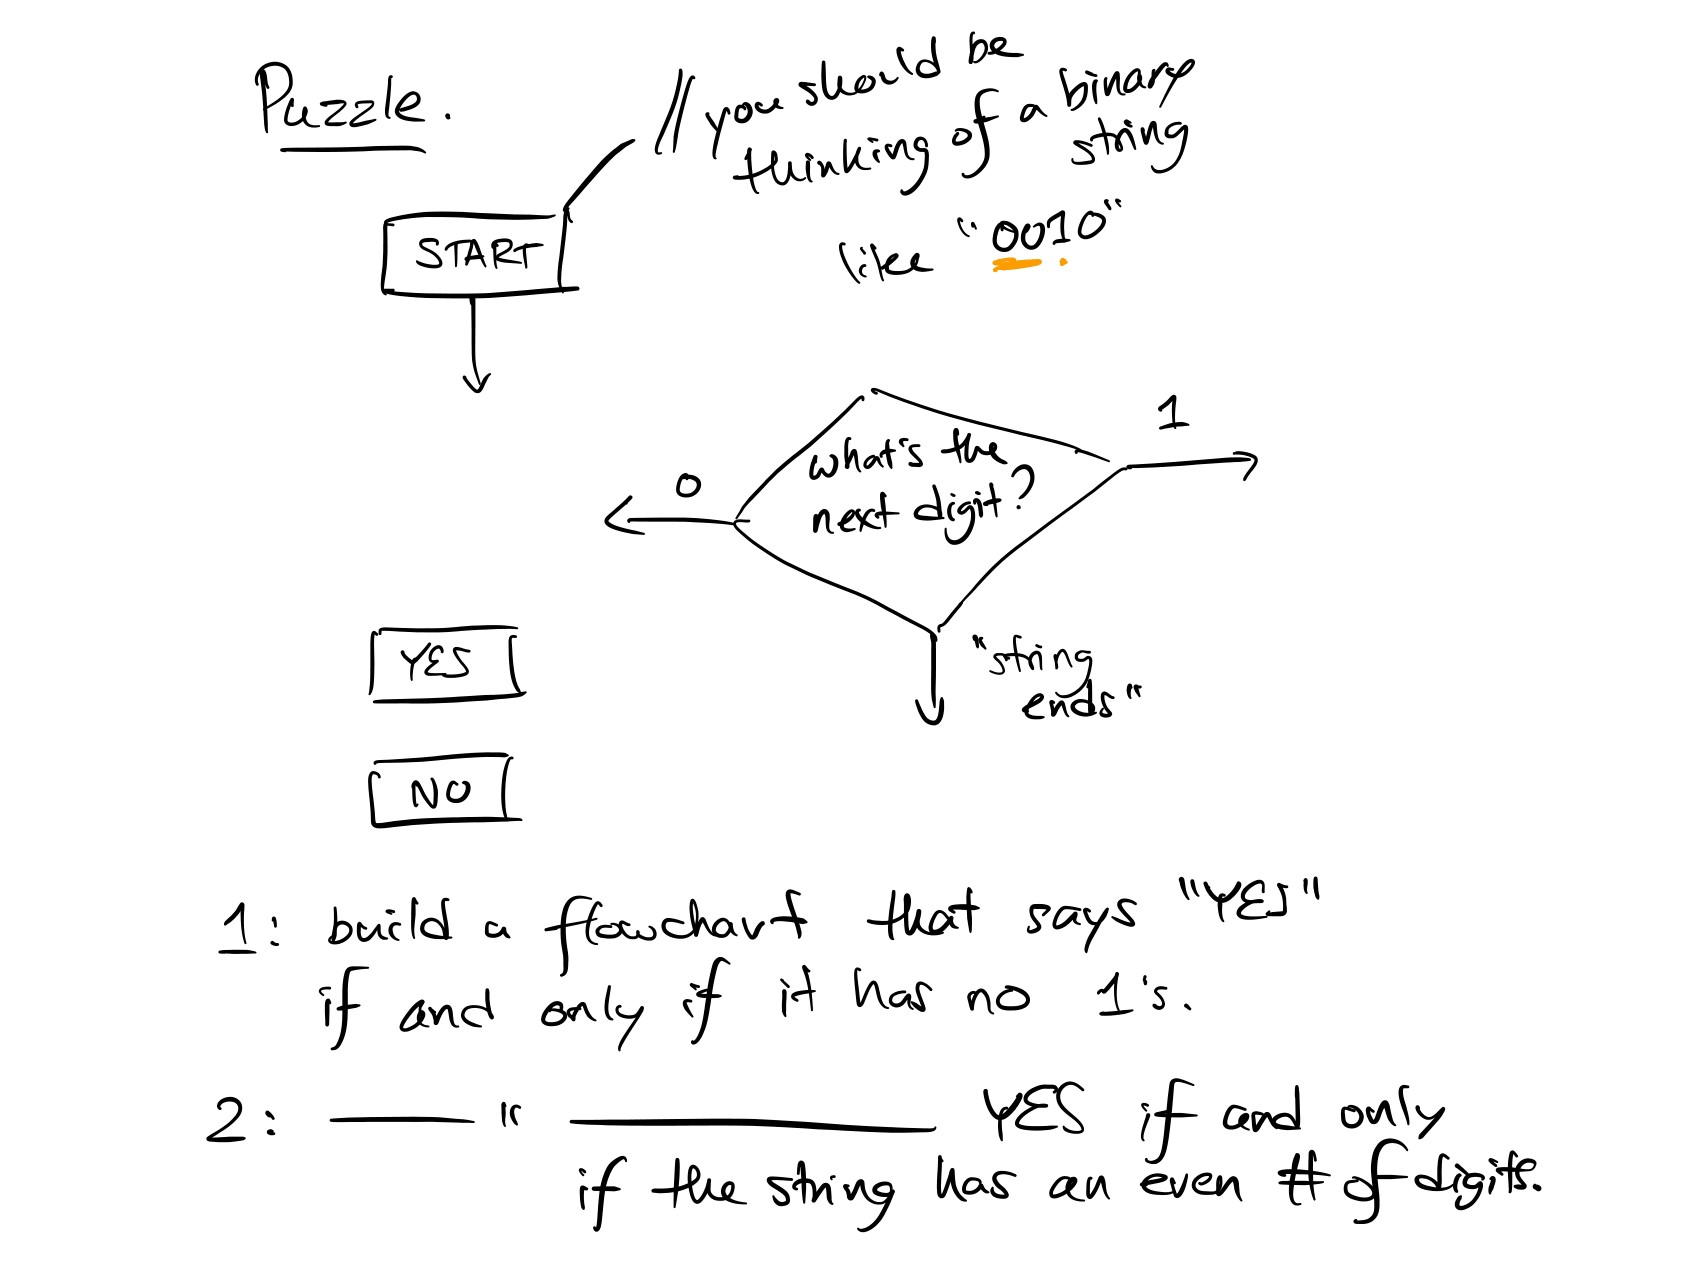 Puzzle.
// you should be
thinking of a binary
string
like "0010"
START
what's the
next digit?
0
1
"string
ends"
YES
NO
1: build a flowchart that says "YES"
if and only if it has no 1's.
2: —— " ———— YES if and only
if the string has an even # of digits.